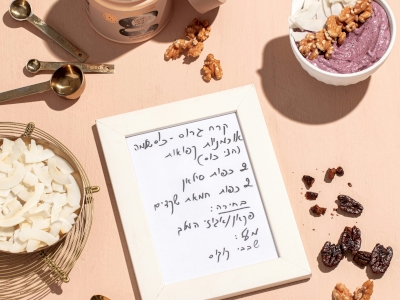 קרח גרוס - כוס שמה
אוכמניות קפואות
(חצי כוס)
2 כפות סילאן
2 כפות חמאת שקדים
בחירה:
פקאן/אגוזי המלך
מעל:
שבבי קוקוס